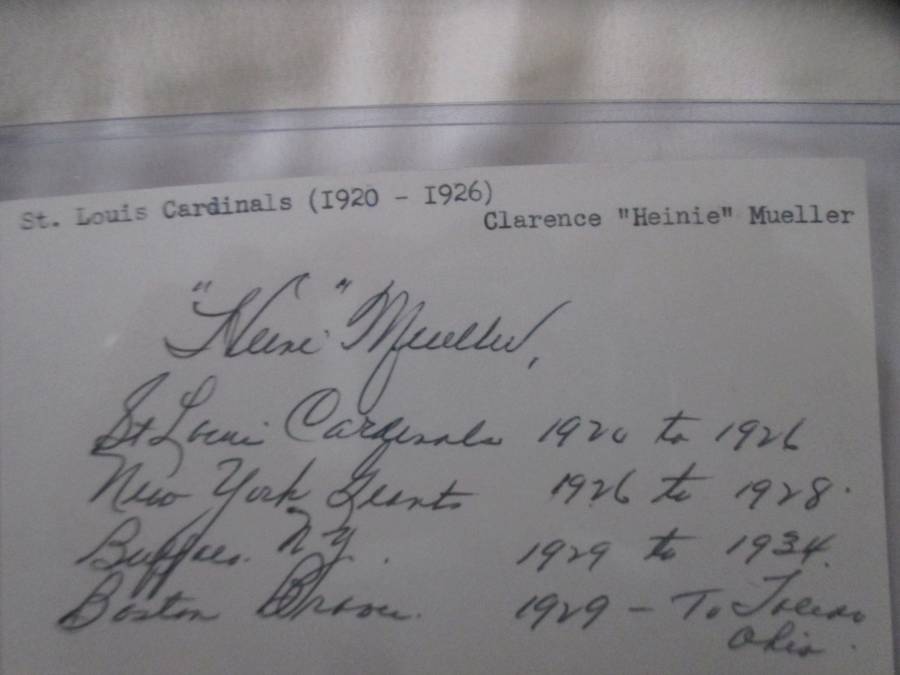 St. Louis Cardinals (I920 - I926)
Clarence "Heinie" Mueller
"Heini" Mueller,
St Louis Cardinals 1920 to 1926
New York Giants 1926 to 1928.
Buffalo. N.Y. 1929 to 1934.
Boston Braves. 1929 - To Toledo
Ohio.